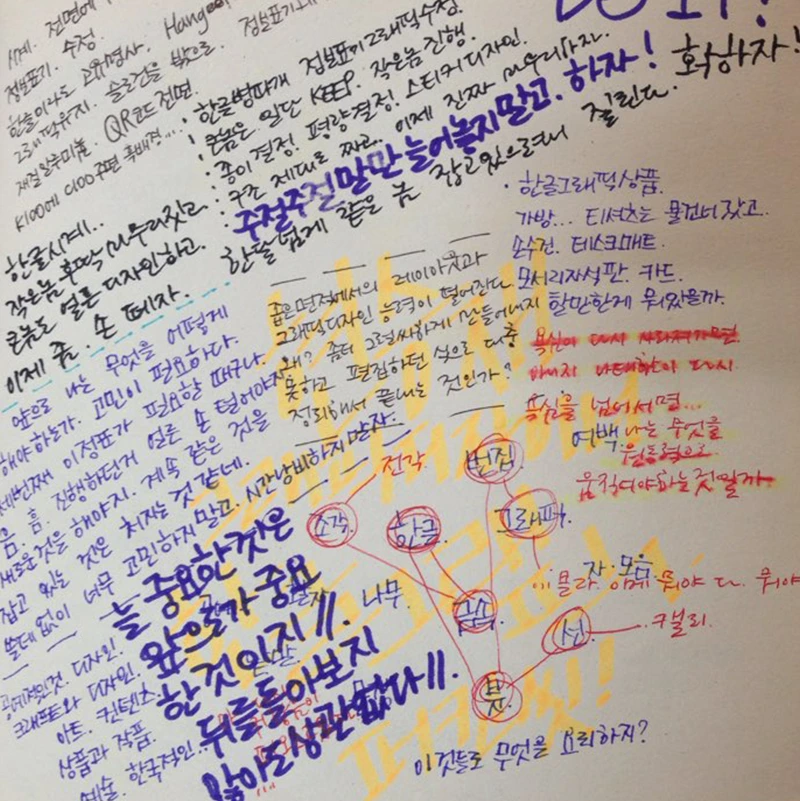 시계. 전면에
정보표기. 수정.
한글이라도 고유명사. Hangeul
그래픽유지. 슬로건을 밖으로. 정보표기
재질 알루미늄. QR코드 전면.
K100에 C100 후면 흑배경...
• 한글병따개 정보표기 그래픽수정.
• 큰놈은 일단 KEEP. 작은놈 진행.
• 종이 결정. 평량결정. 스티커디자인.
• 구조 제대로 짜고. 이제 진짜 마무리하자.
주절주절 말만 늘어놓지말고. 하자!
한글시계..
작은놈 후딱 마무리짓고
큰놈도 얼른 디자인하고.
이제 좀. 손 떼자.
한달 넘게 같은 놈 잡고있으려니 질린다. 확하자!
• 한글그래픽상품.
가방... 티셔츠는 물건너갔고.
손수건. 데스크매트.
모서리자석판. 카드.
할만한게 뭐있을까.
좁은면적에서의 레이아웃과
그래픽디자인 능력이 떨어잔다.
왜? 좀더 그럴싸하게 만들어내지
못하고 편집하던 식으로 대충
정리해서 끝내는 것인가?
앞으로 나는 무엇을 어떻게
해야 하는가. 고민이 필요하다.
세번째 이정표가 필요할 때구나.
흠. 흠. 진행하던거 얼른 손 털어야지
새로운것을 해야지. 계속 같은 것을
잡고 있는 것은 처지는 것 같네.
쓸데없이 너무 고민하지 말고. 시간낭비하지 말자.
욕심이 다시 사라져가면
나태함이 다시.
욕심을 넘어서면...
여백. 나는 무엇을
원동력으로
움직여야하는 것일까
늘 중요한 것은
앞으로가 중요
한 것이지//.
뒤를 돌아보지
않아도 상관 없다//.
공예적인것. 디자인.
크래프트와 디자인.
아트. 컨텐츠.
상품과 작품.
예술. 한국적인.
전각
편집
조각
한글
그래픽.
나무.
금속
선
캘리.
붓.
자. 모음.
이것들로 무엇을 요리하지?